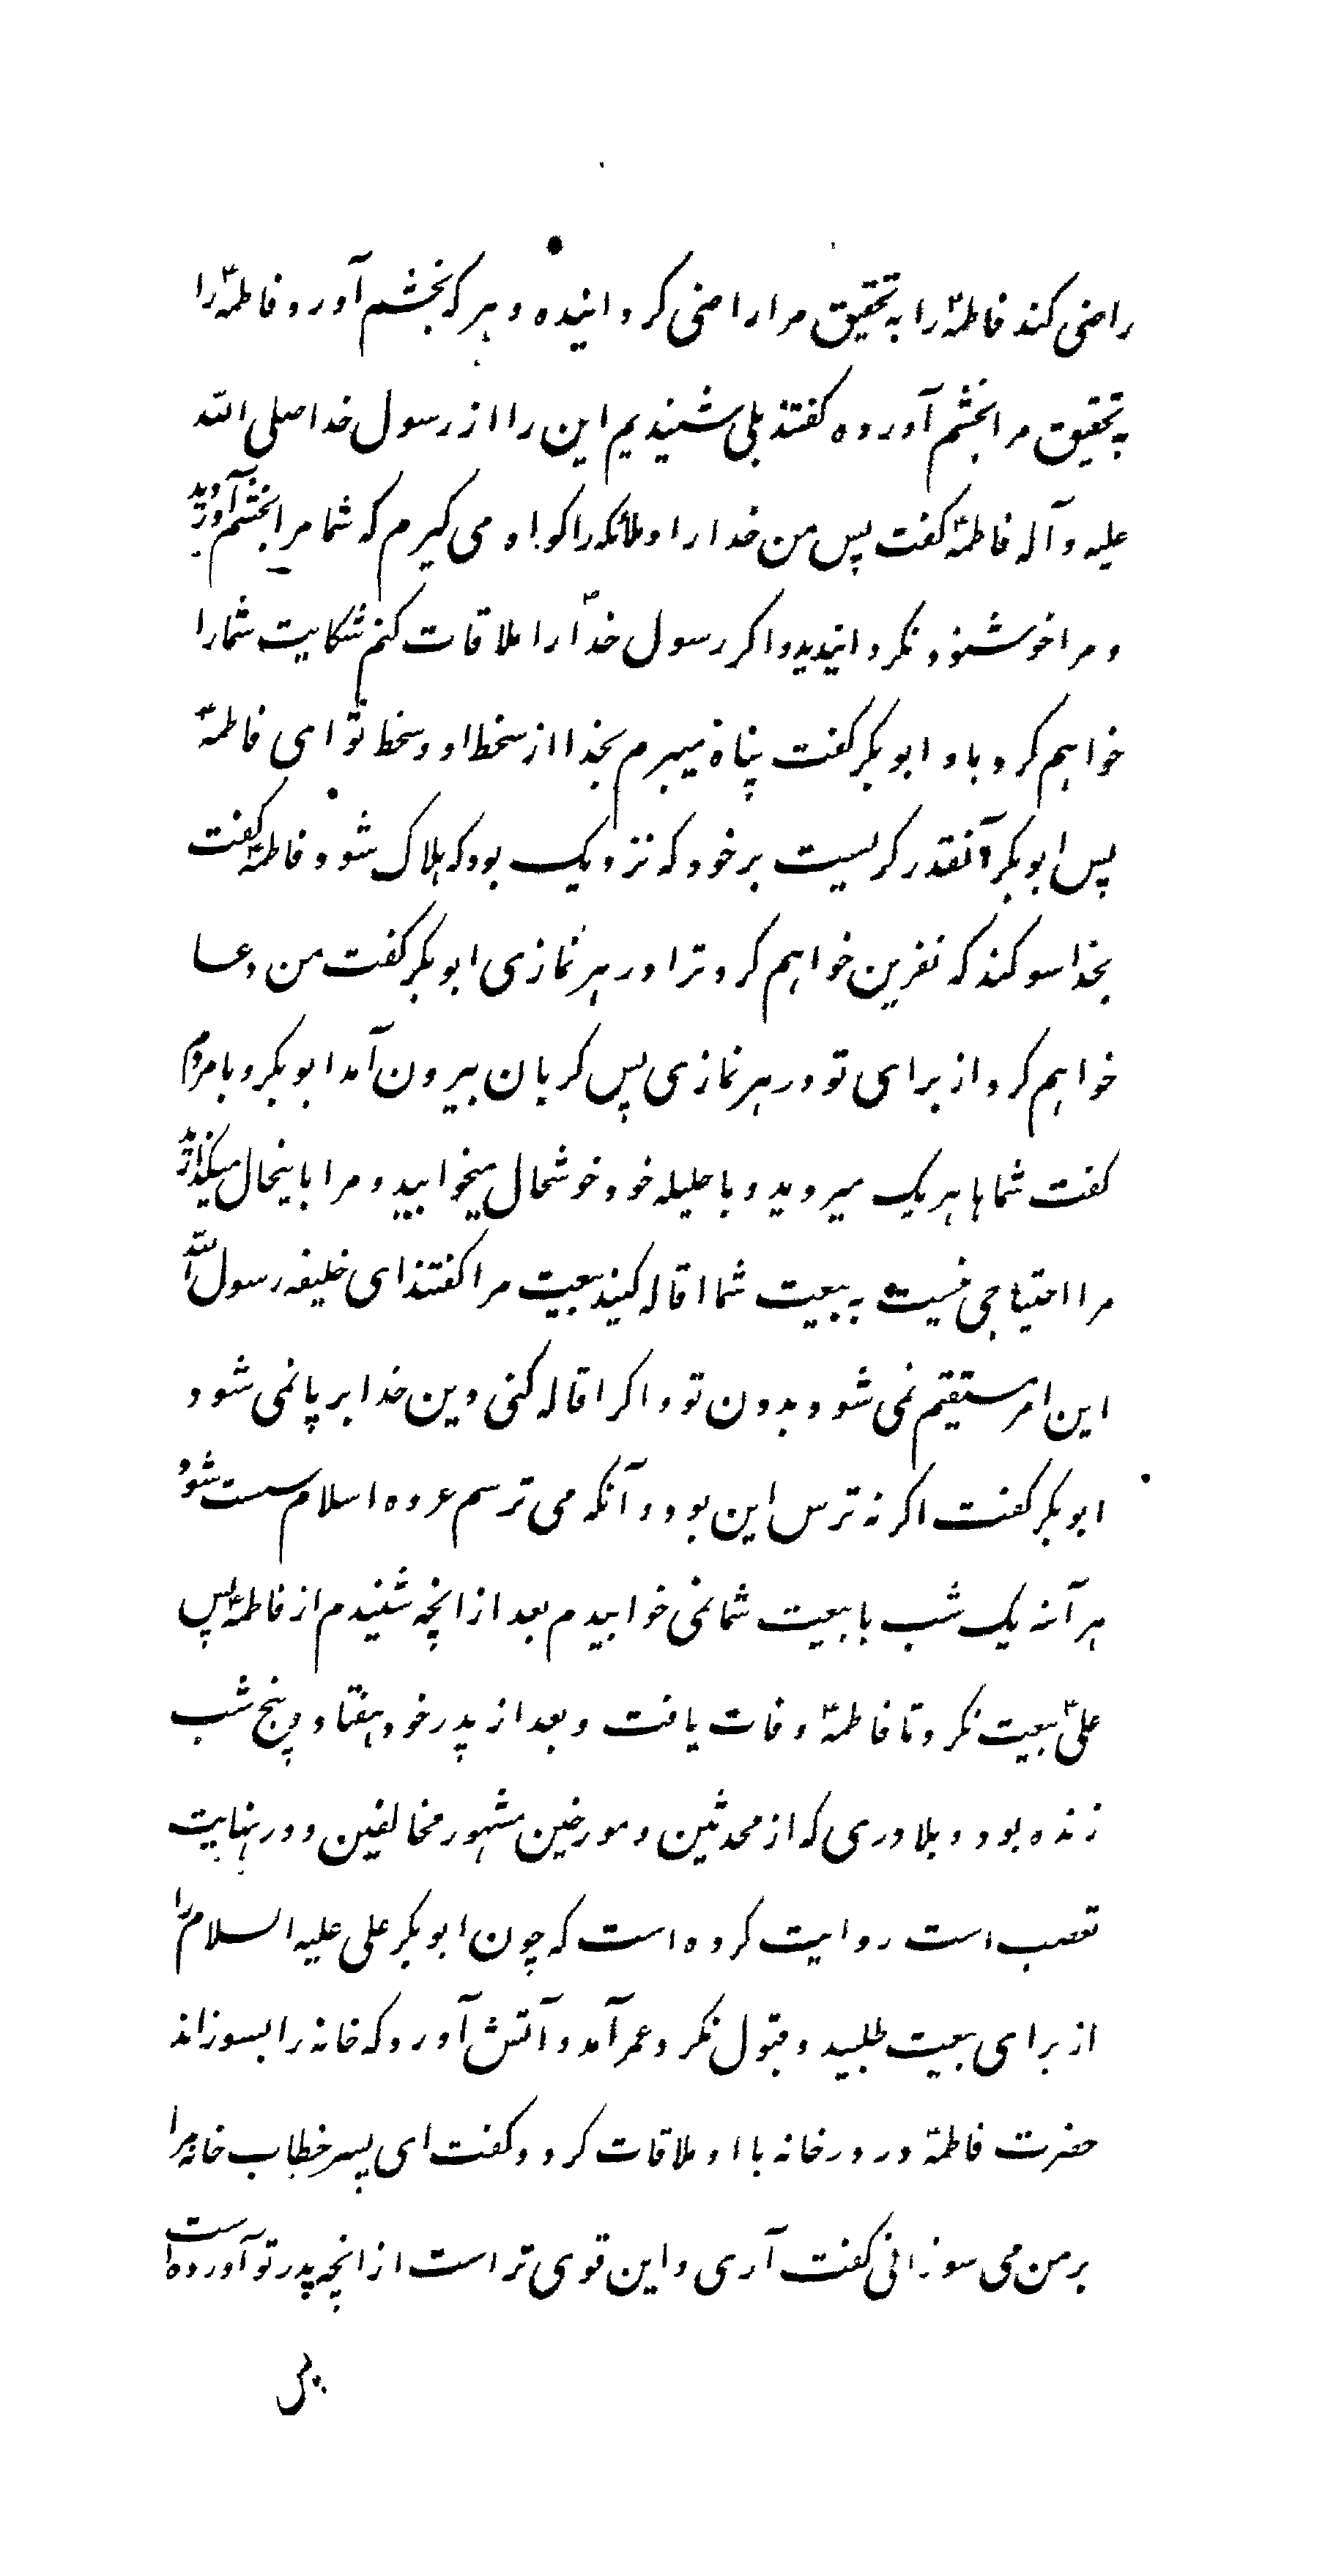 راضی کند فاطمهؑ را به تحقیق مرا راضی کردانیده و هر که بخشم آورد فاطمهؑ را
به تحقیق مرا بخشم آورده کفتند بلی شنیدیم این را از رسول خدا صلی الله
علیه و آله فاطمهؑ کفت پس من خدا را و ملائکه را کواه می کیرم که شما مرا بخشم آوردید
و مرا خوشنود نکردانیدید و اکر رسول خداؐ را ملاقات کنم شکایت شما را
خواهم کرد باو ابوبکر کفت پناه میبرم بخدا از سخط او و سخط تو ای فاطمهؑ
پس ابوبکر آنقدر کریست بر خود که نزدیک بود که هلاک شود و فاطمهؑ کفت
بخدا سوکند که نفرین خواهم کرد ترا در هر نمازی ابوبکر کفت من دعا
خواهم کرد از برای تو در هر نمازی پس کریان بیرون آمد ابوبکر و با مردم
کفت شماها هریک میروید و با حلیله خود خوشحال میخوابید و مرا باینحال میکذارید
مرا احتیاجی نیست به بیعت شما اقاله کنید بیعت مرا کفتند ای خلیفه رسول الله
این امر مستقیم نمی شود بدون تو و اکر اقاله کنی دین خدا بر پا نمی شود
ابوبکر کفت اکر نه ترس این بود و آنکه می ترسم عروه اسلام سست شود
هر آنه یک شب با بیعت شما نمی خوابیدم بعد از انچه شنیدم از فاطمهؑ پس
علیؑ بیعت نکرد تا فاطمهؑ وفات یافت و بعد از پدر خود هفتاد و پنج شب
زنده بود و بلادری که از محدثین و مورخین مشهور مخالفین و در نهایت
تعصب است روایت کرده است که چون ابوبکر علی علیه السلام را
از برای بیعت طلبید و قبول نکرد عمر آمد و آتش آورد که خانه را بسوزاند
حضرت فاطمهؑ در در خانه با او ملاقات کرد و کفت ای پسر خطاب خانه مرا
بر من می سوزانی کفت آری و این قوی تر است از انچه پدر تو آورده است
پس